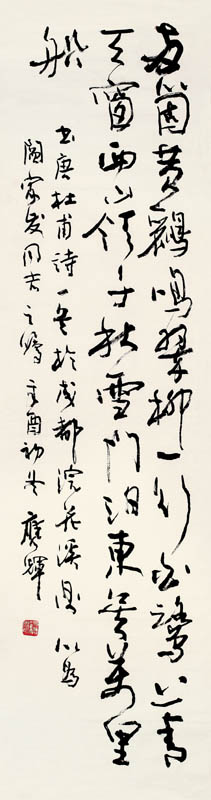 兩箇黄鸝鳴翠柳一行白鷺上青
天窗西嶺千秋雪門泊東吳萬里
船
書唐杜甫詩一首於成都浣花溪
家发同志之囑辛酉初冬應輝